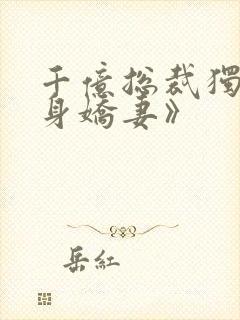 千億總裁獨
身嬌妻》
岳紅